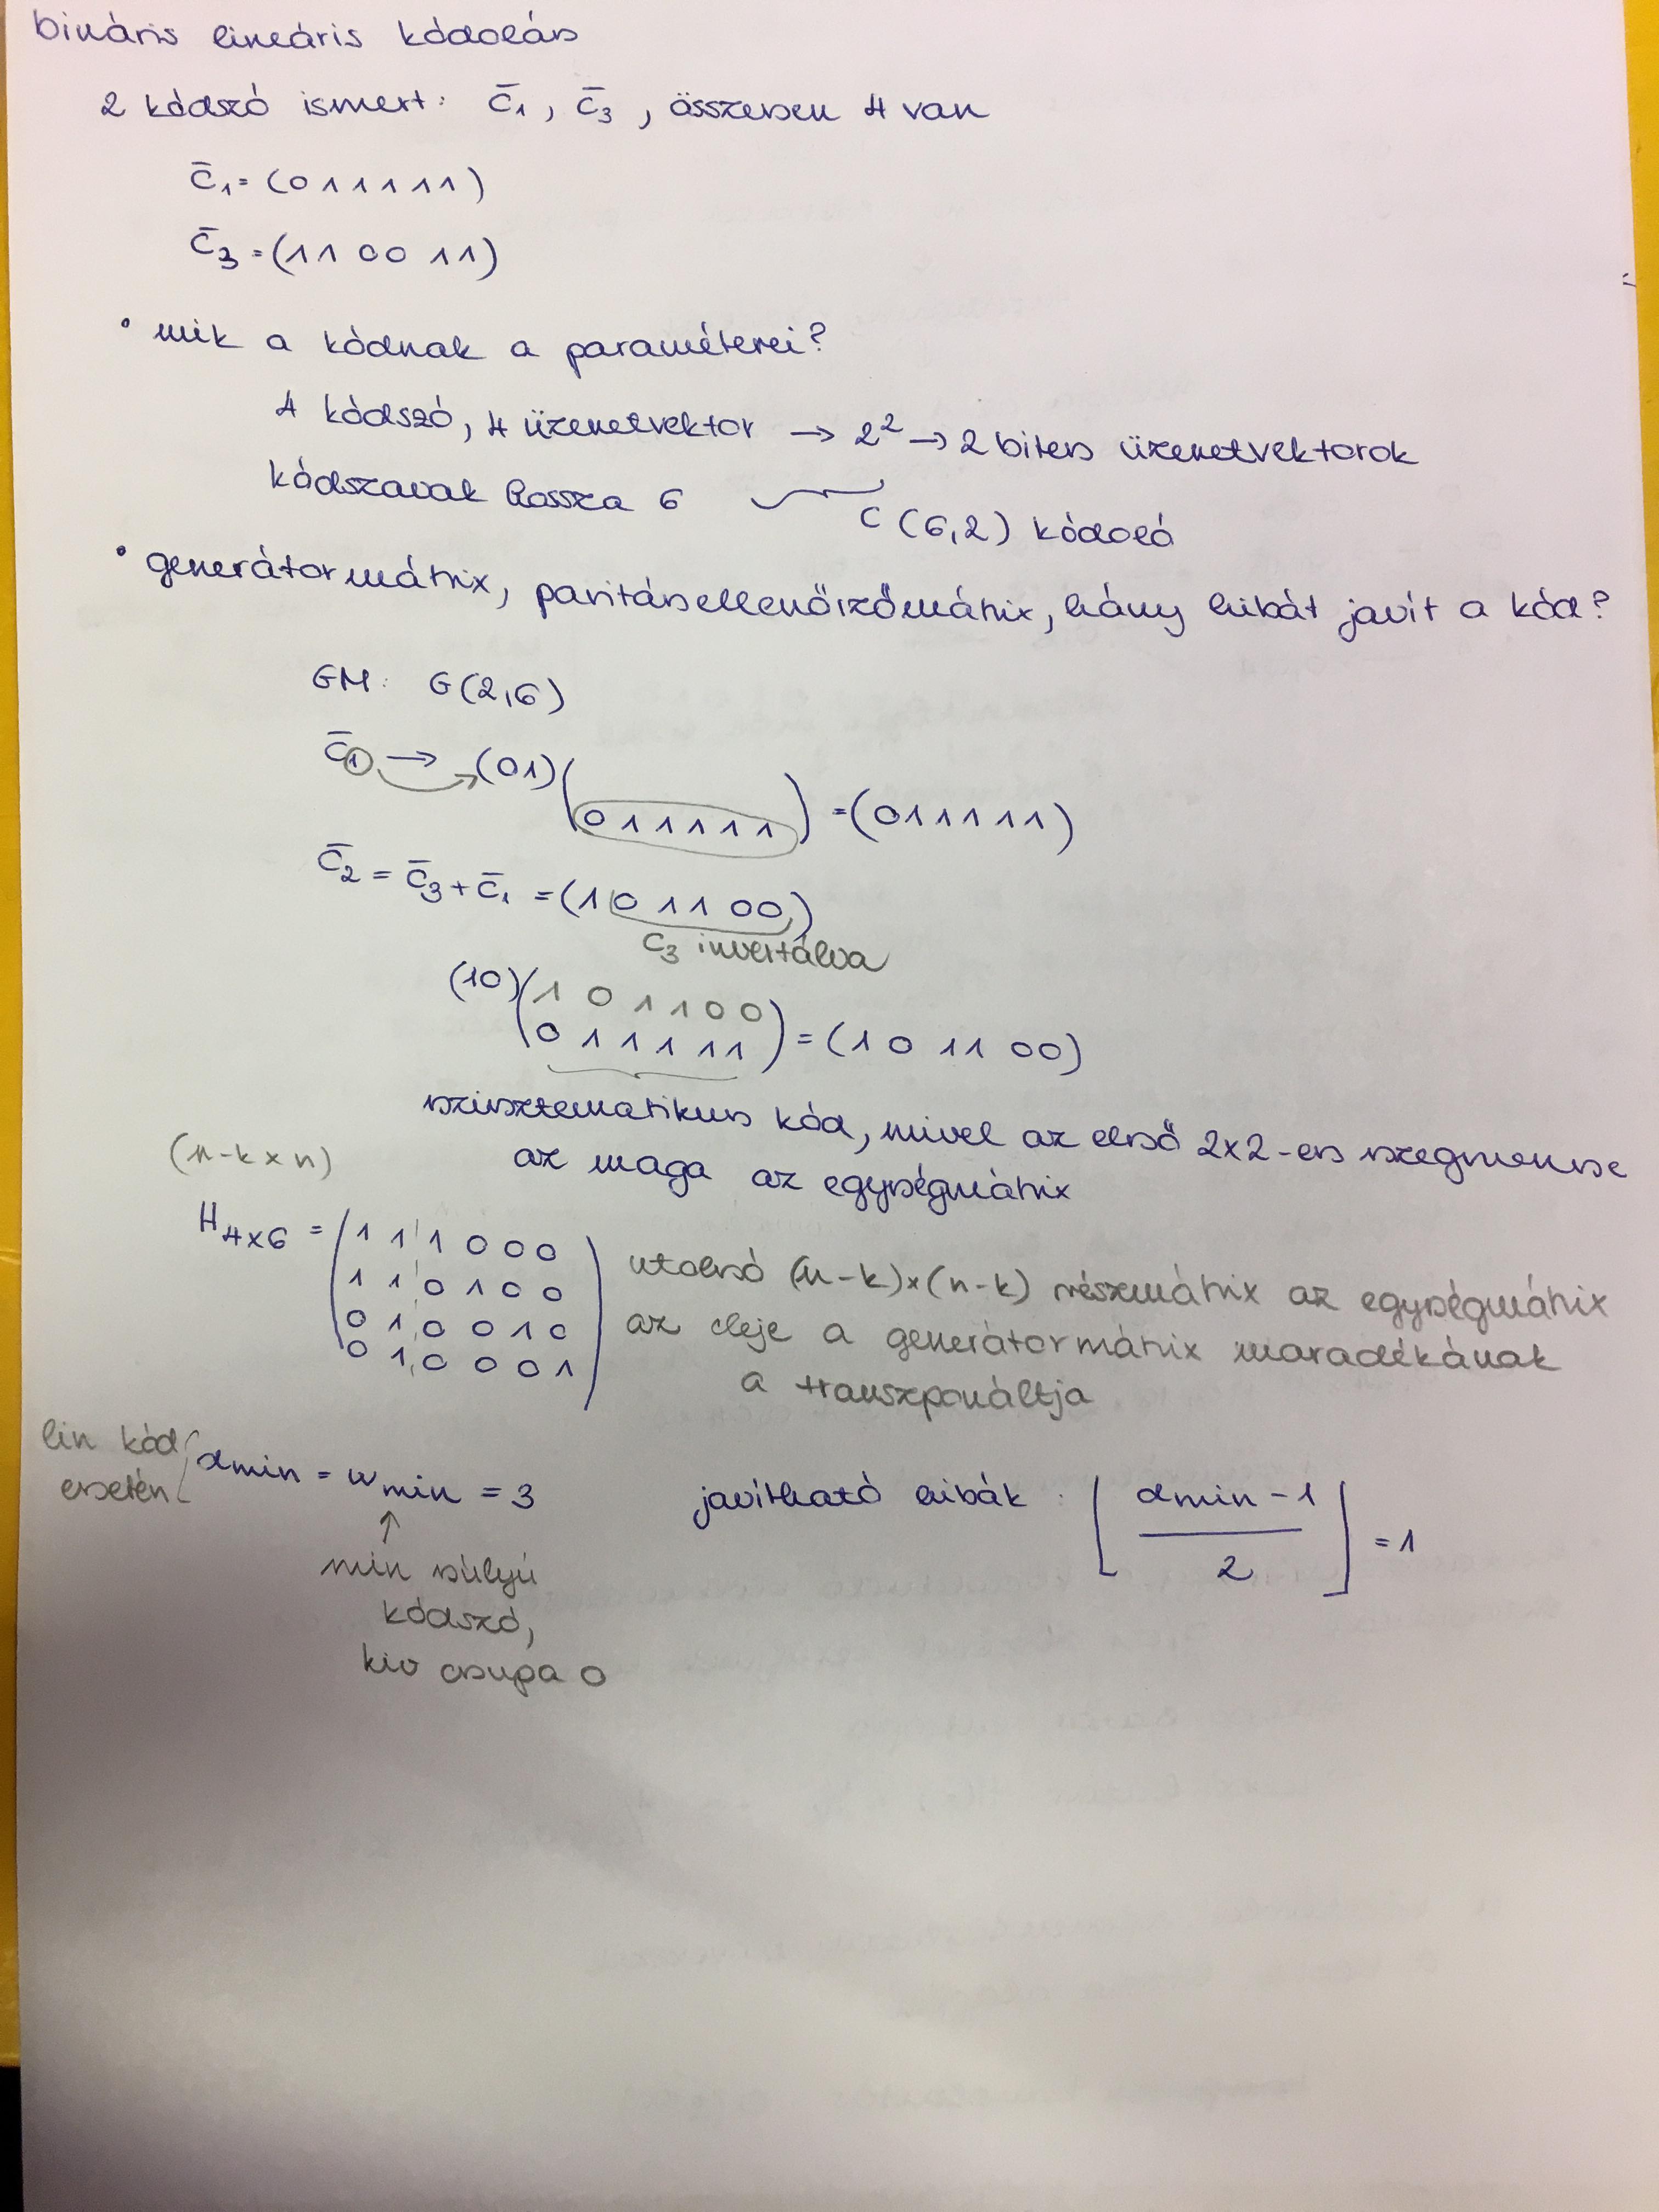 bináris lineáris kódolás
2 kódszó ismert: c̄₁, c̄₃, összesen 4 van
c̄₁=(0 1 1 1 1 1)
c̄₃=(1 1 0 0 1 1)
• mik a kódnak a paraméterei?
4 kódszó, 4 üzenetvektor → 2² → 2 bites üzenetvektorok
kódszavak hossza 6
C (6,2) kódoló
• generátormátrix, paritásellenőrzőmátrix, hány hibát javít a kód?
GM: G(2,6)
c̄₁ → (01)(0 1 1 1 1 1) =(0 1 1 1 1 1)
c̄₂ = c̄₃+c̄₁ =(1 0 1 1 0 0)
c₃ invertálva
(10)(1 0 1 1 0 0
0 1 1 1 1 1) = (1 0 1 1 0 0)
szisztematikus kód, mivel az első 2x2-es szegmense
az maga az egységmátrix
(n-k x n)
H₄ₓ₆ = (1 1 1 0 0 0
1 1 0 1 0 0
0 1 0 0 1 0
0 1 0 0 0 1)
utolsó (n-k)x(n-k) részmátrix az egységmátrix
az eleje a generátormátrix maradékának
a transzponáltja
lin kód
esetén
dmin = wmin = 3
javítható hibák : ⌊(dmin-1)/2⌋ = 1
↑
min súlyú
kódszó,
kiv csupa 0